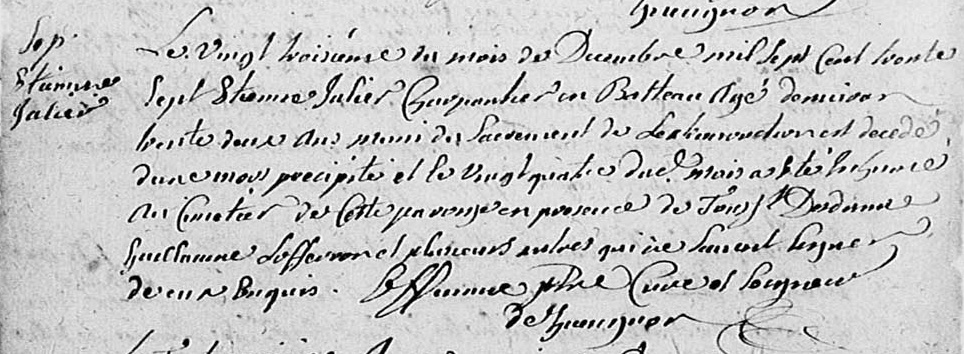 Sep.
Etienne
Julier
Le vingt troisieme du mois de Decembre mil sept cent trente
Sept Etienne Julier Charpentier en Batteau agé denviron
trente deux ans muni du Sacrement de est decedé
dune mort precipité et le vingt quatre dud. mois a eté Inhumé
au Cimetier de Cette paroisse en presence de
Guillaume et plusieurs autres qui ne scavent signer
de eux Enquis. ptre Curé et Seigneur
de